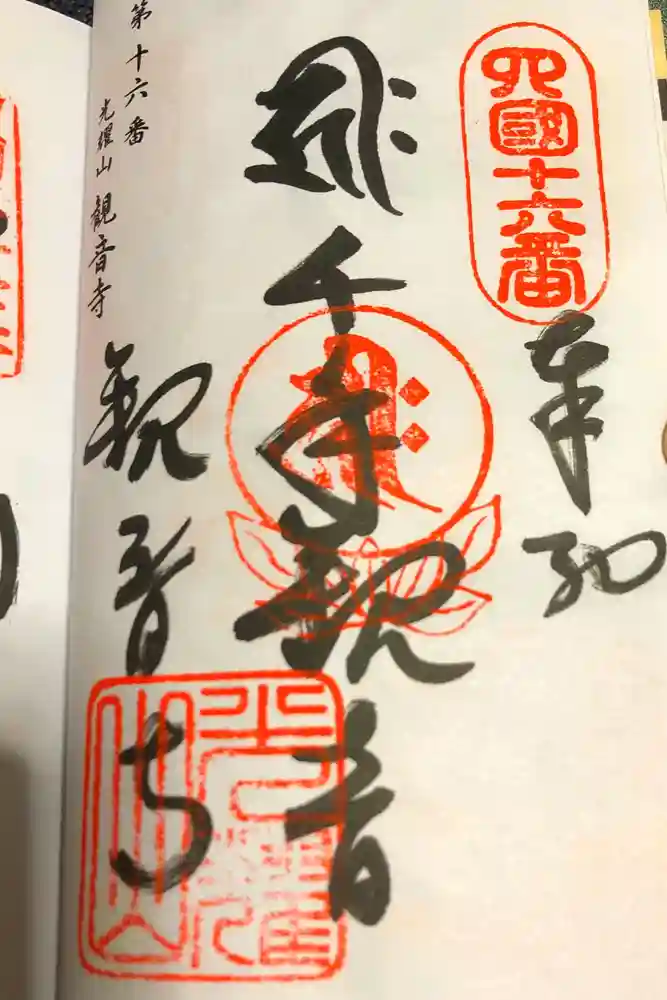 四國十六番
奉納
千手観音
第十六番
光耀山 観音寺
観音寺
光耀山